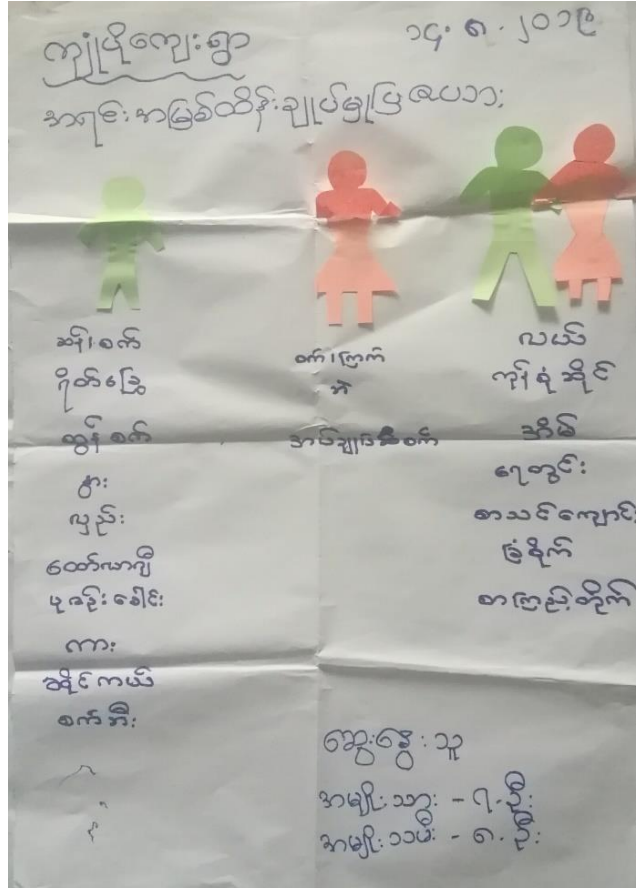 ကျုံပိုကျေးရွာ
၁၄.၈.၂၀၁၉
အရင်းအမြစ်ထိန်းချုပ်မှုပြဇယား
ဆန်စက်
ရိတ်ခြွေ
ထွန်စက်
နွား
လှည်း
ထော်လာဂျီ
ပုစဉ်းခေါင်း
ကား
ဆိုင်ကယ်
စက်ဘီး
စက်၊ကြက်
ဘဲ
အပ်ချုပ်စက်
လယ်
ကုန်စုံဆိုင်
အိမ်
ရေတွင်း
စာသင်ကျောင်း
ခြံစိုက်
စာကြည့်တိုက်
ဆွေးနွေးသူ
အမျိုးသား - ၇.ဦး
အမျိုးသမီး - ၈.ဦး